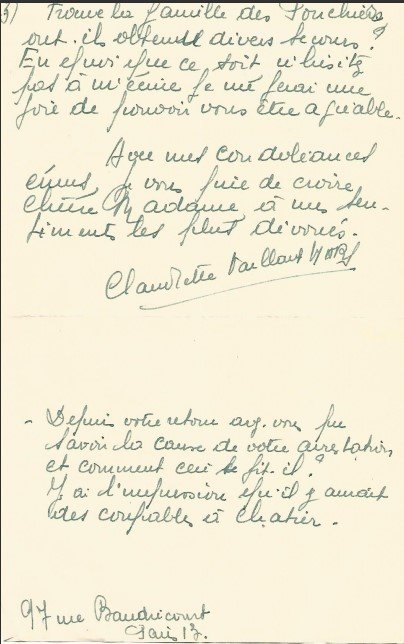 3) Trouve la famille des Ponchiers
ont-ils obtenu divers secours?
En quoi que ce soit n'hésitez
pas à m'écrire je me ferai une
joie de pouvoir vous être agréable.
Avec mes condoléances
émues je vous prie de croire
Chère Madame à mes sen-
timents les plus dévoués.
Claudette Vaillant
- Depuis votre retour avez vous pu
savoir la cause de votre arrestation
et comment ceci se fit-il?
J'ai l'impression qu'il y aurait
des coupables à châtier.
97 rue Baudricourt
Paris 13.